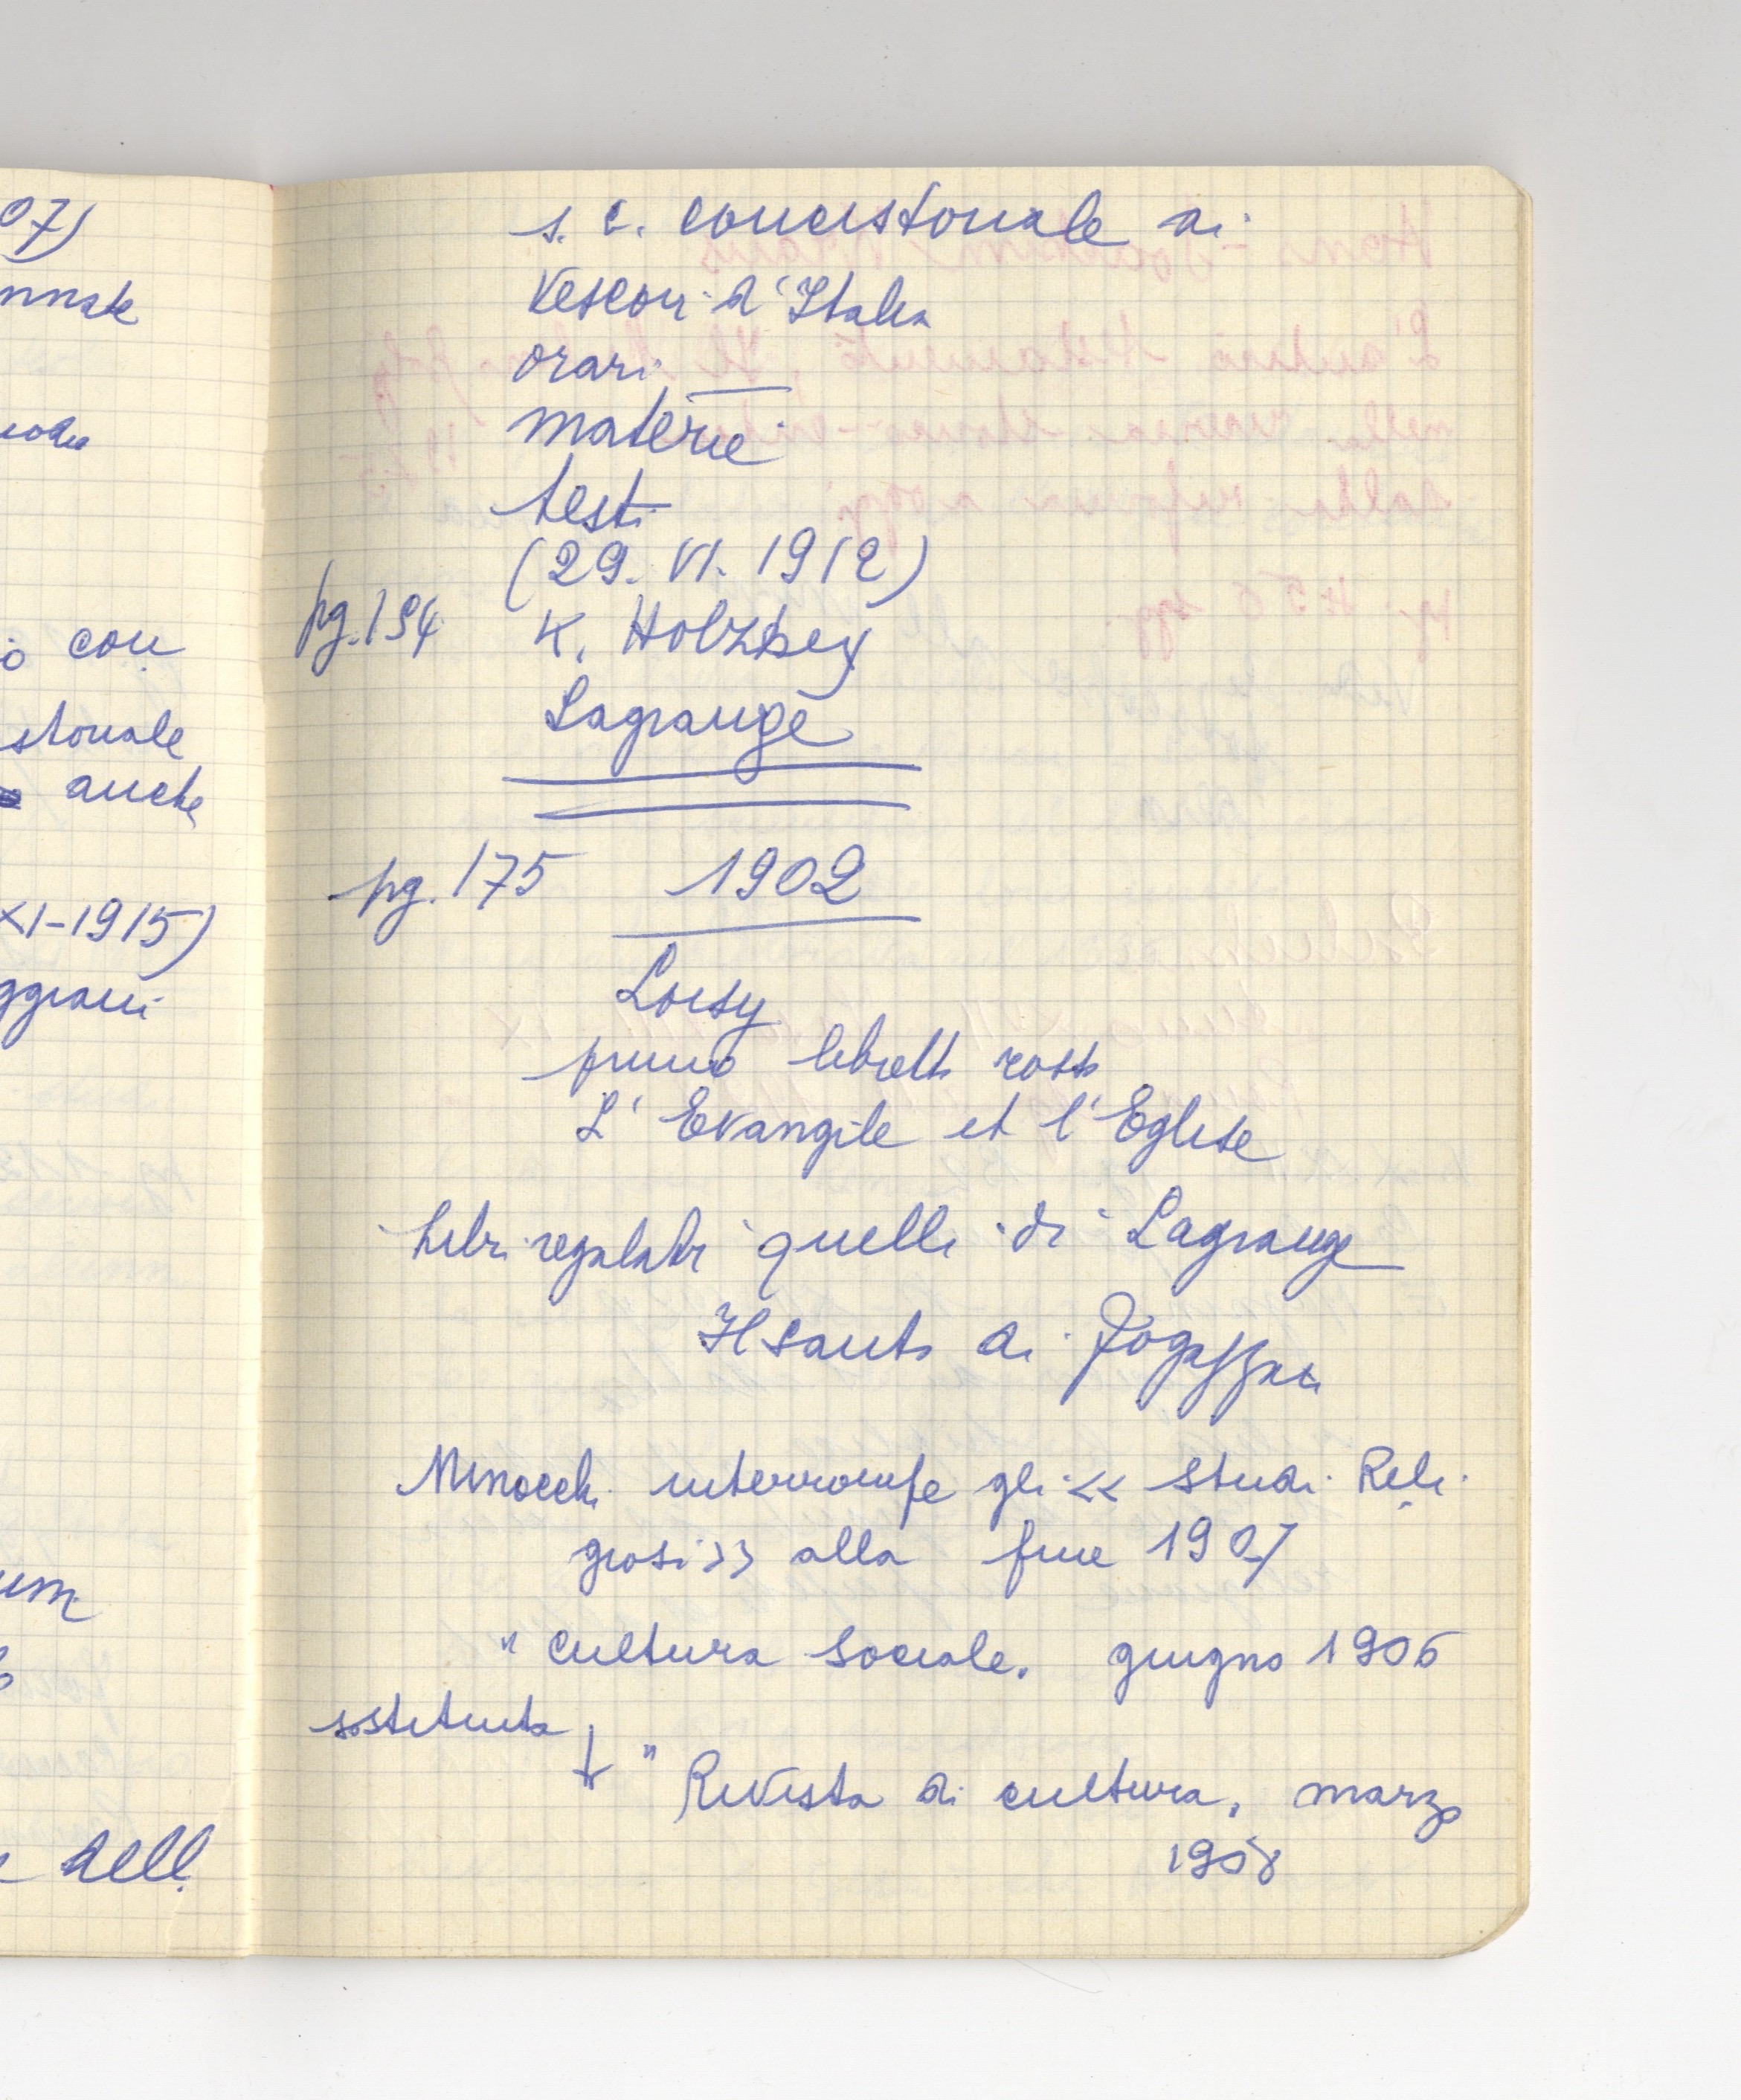 07)
nnate
o con
stonale
anche
XI-1915)
ggiani
um
dell'
s. c. concistoriale ai
Vescovi d'Italia
orari
materie
testi
(29. VI. 1912)
pg. 194 K. Holzhey
Lagrange
pg. 175 1902
Loisy
primo libretto rosso
L'Evangile et l'Eglise
libri regalati quelli di Lagrange
Il santo di Fogazzaro
Minocchi interrompe gli << Studi Reli
giosi >> alla fine 1907
" Cultura Sociale. giugno 1906
sostituita ↓
" Rivista di cultura. marzo
1908